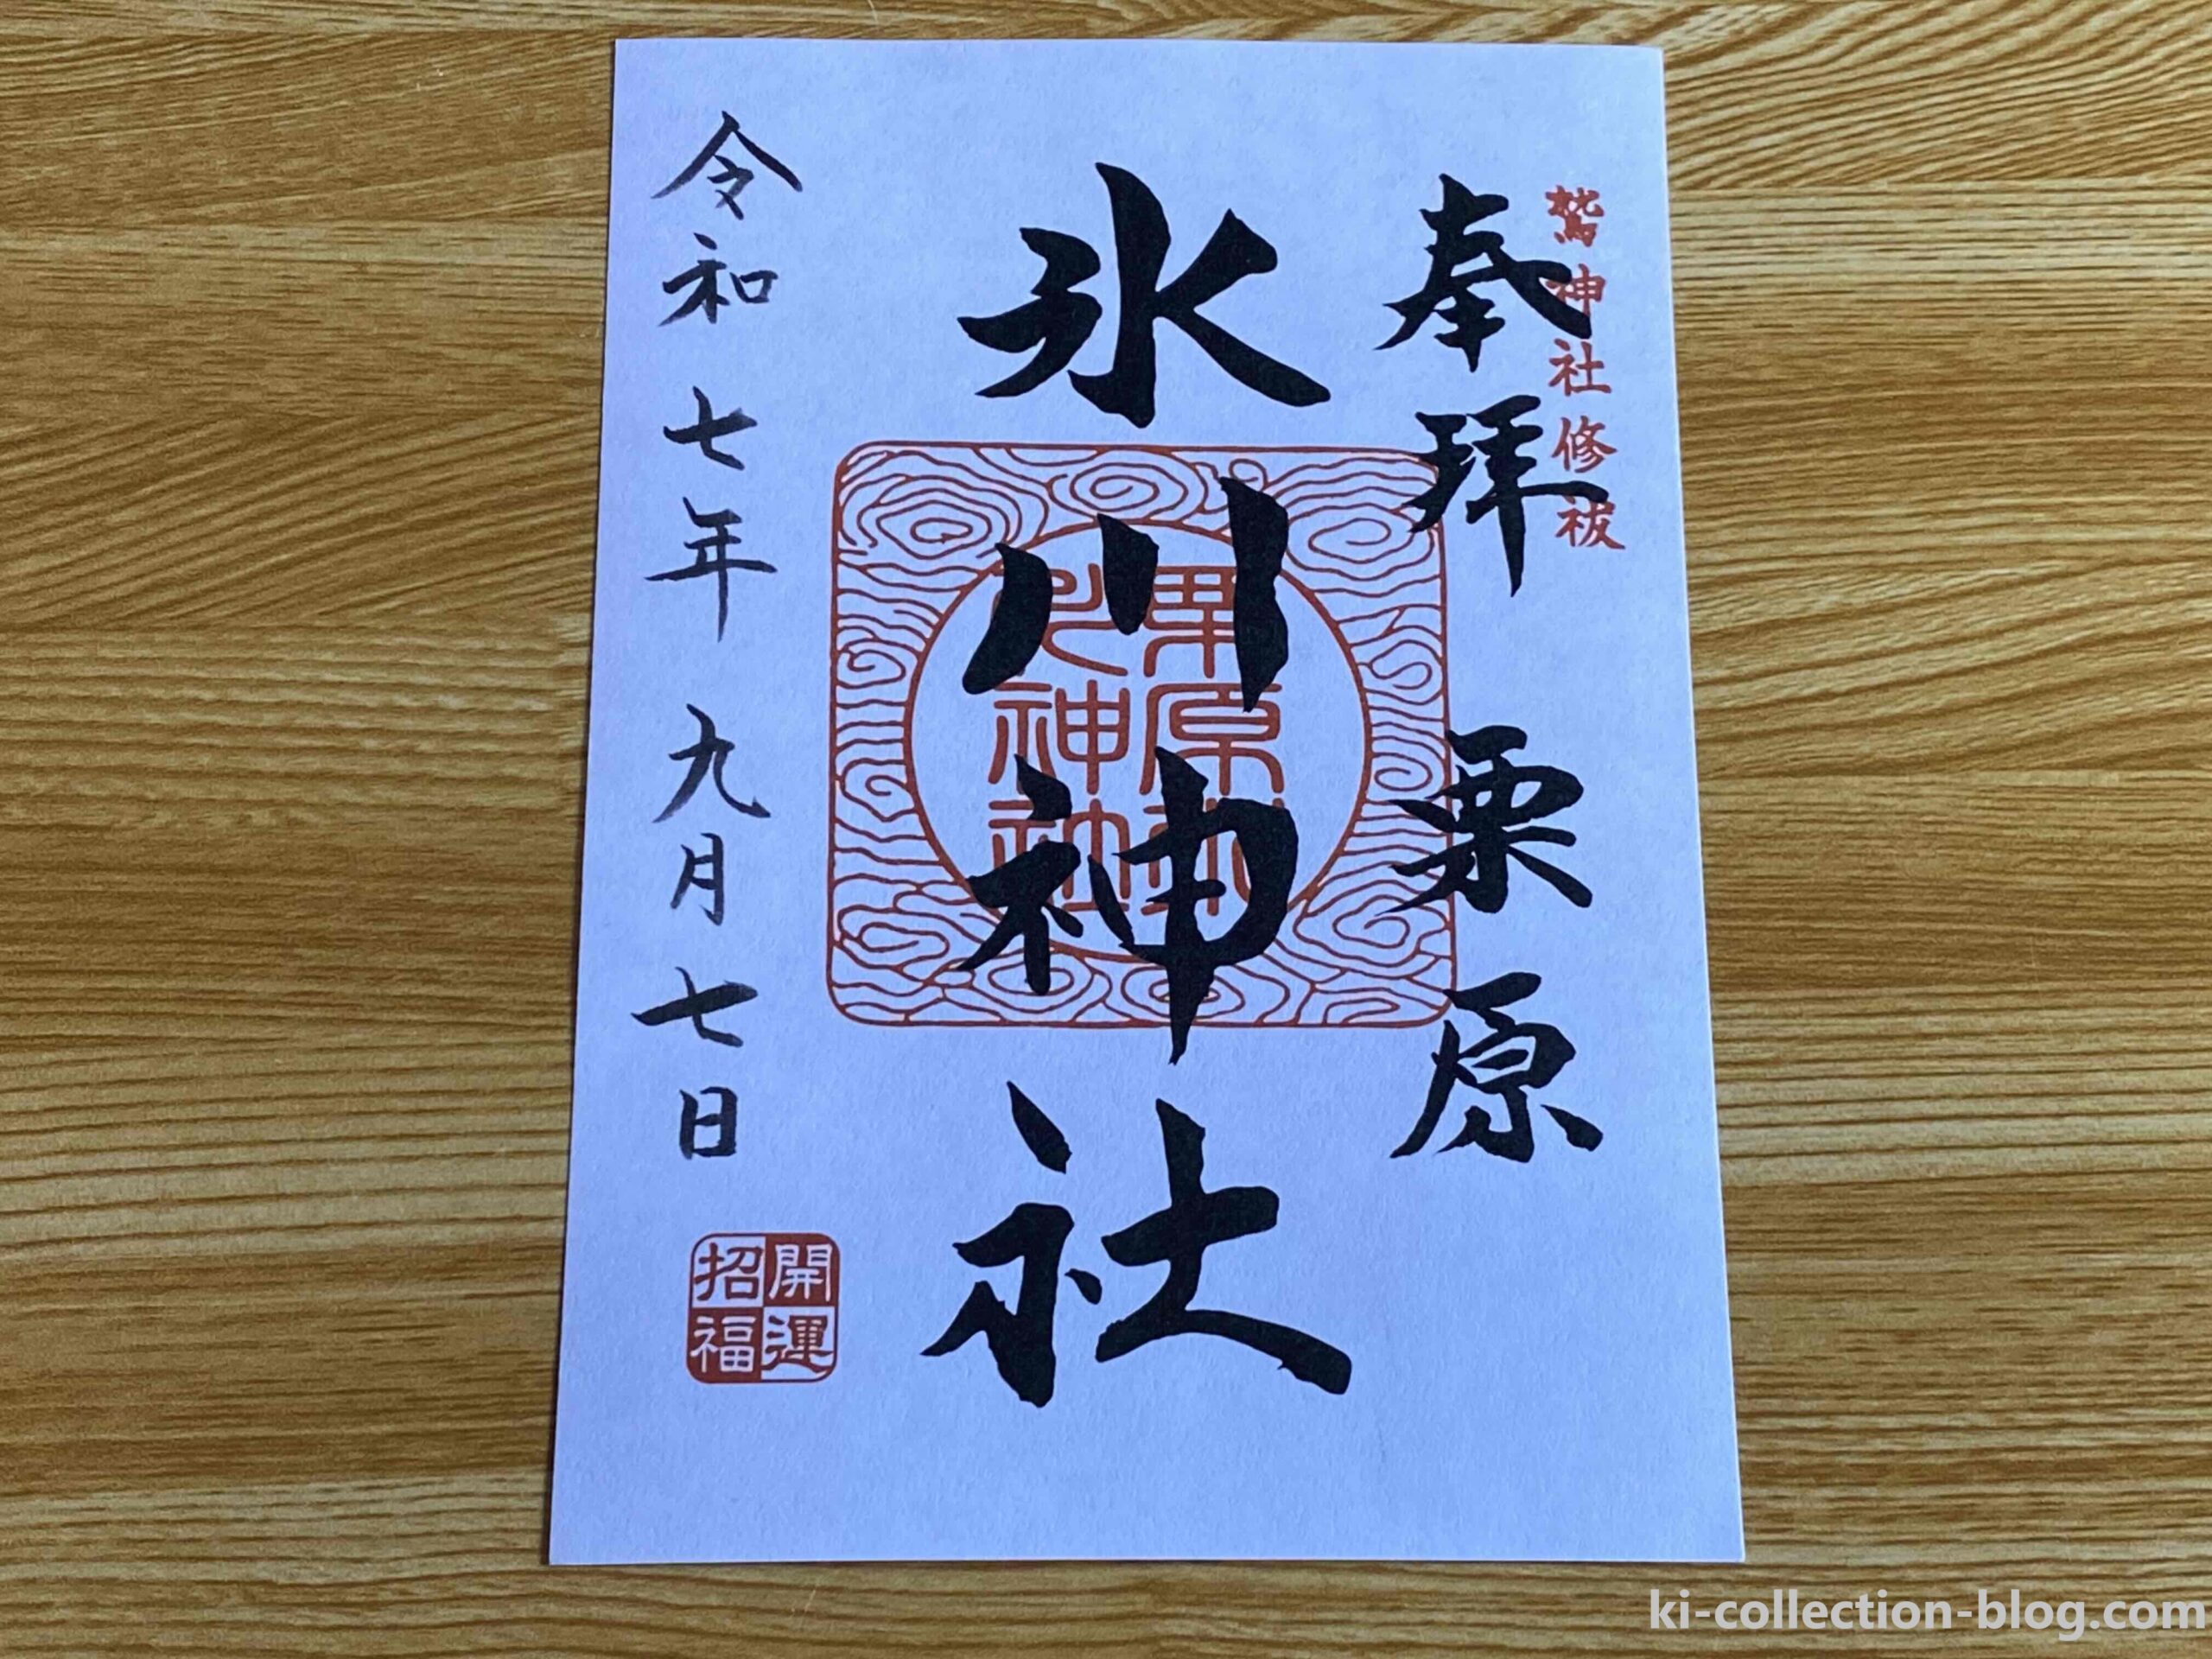 鷲神社修祓
奉拝 栗原
氷川神社
令和七年 九月七日
開運
招福
ki-collection-blog.com